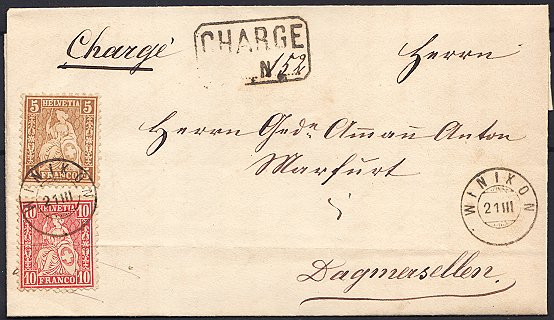 Chargé
CHARGE
No 152
Herrn
Herrn Gedn Ammann Anton
Marfurt
in
Dagmersellen.
5 HELVETIA 5
FRANCO
WINIKON
21 III
10 HELVETIA 10
10 FRANCO 10
WINIKON
21 III